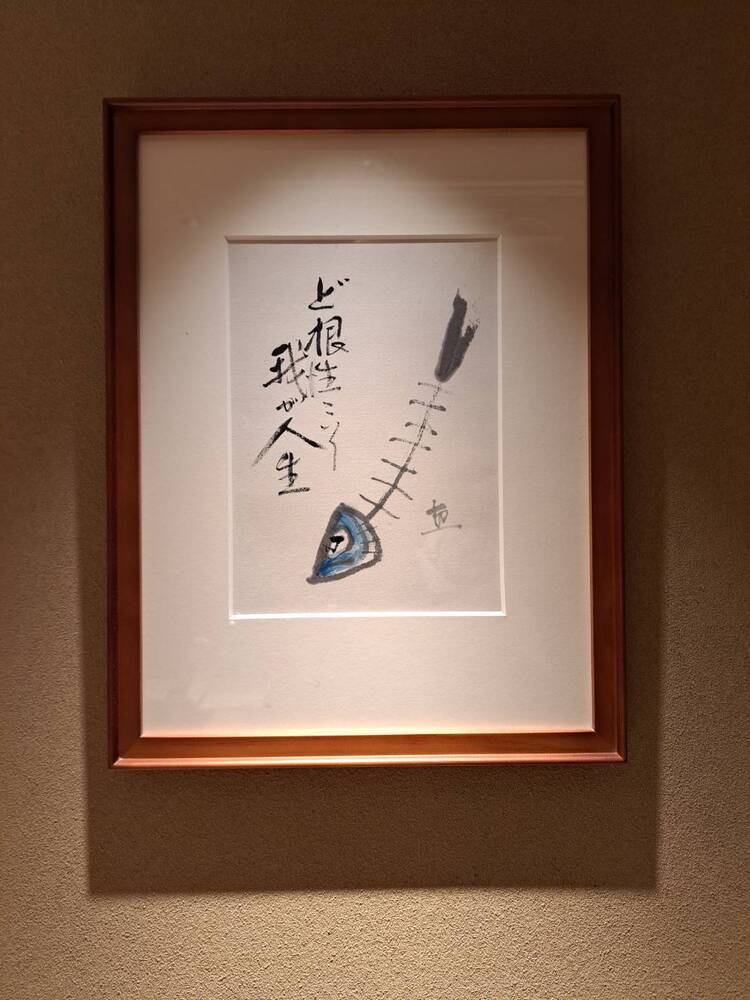 ど根性こそ
我が人生